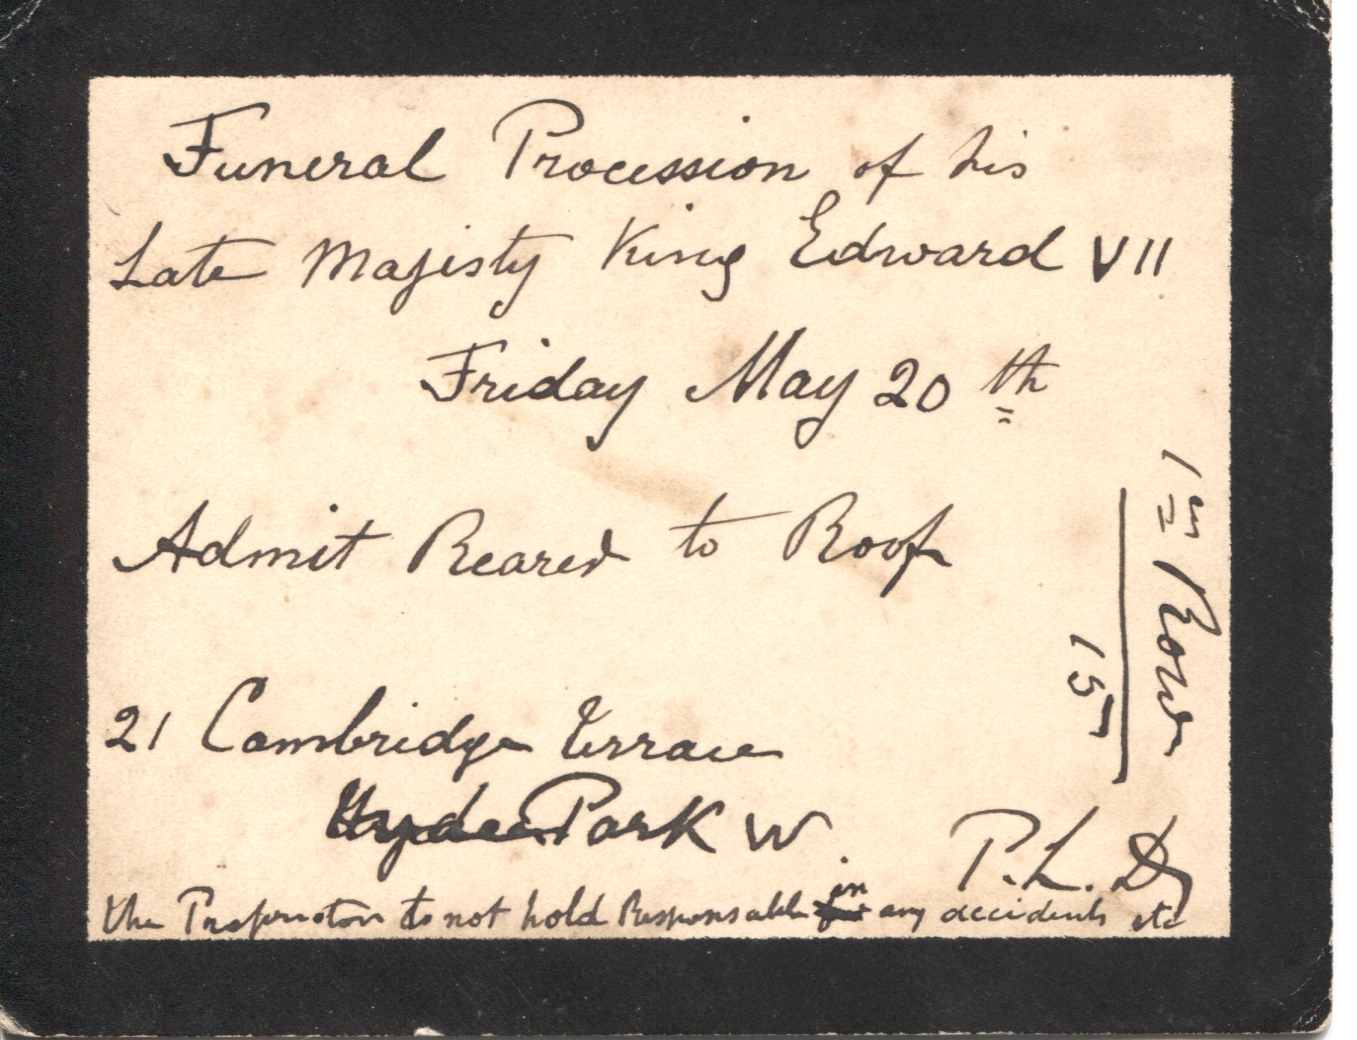 Funeral Procession of his
Late Majisty King Edward VII
Friday May 20th
Admit Bearer to Roof
21 Cambridge Terrace
Hyde Park W
P.L.D
the Proprietor to not hold Responsable in any accidents etc
1st Row
15